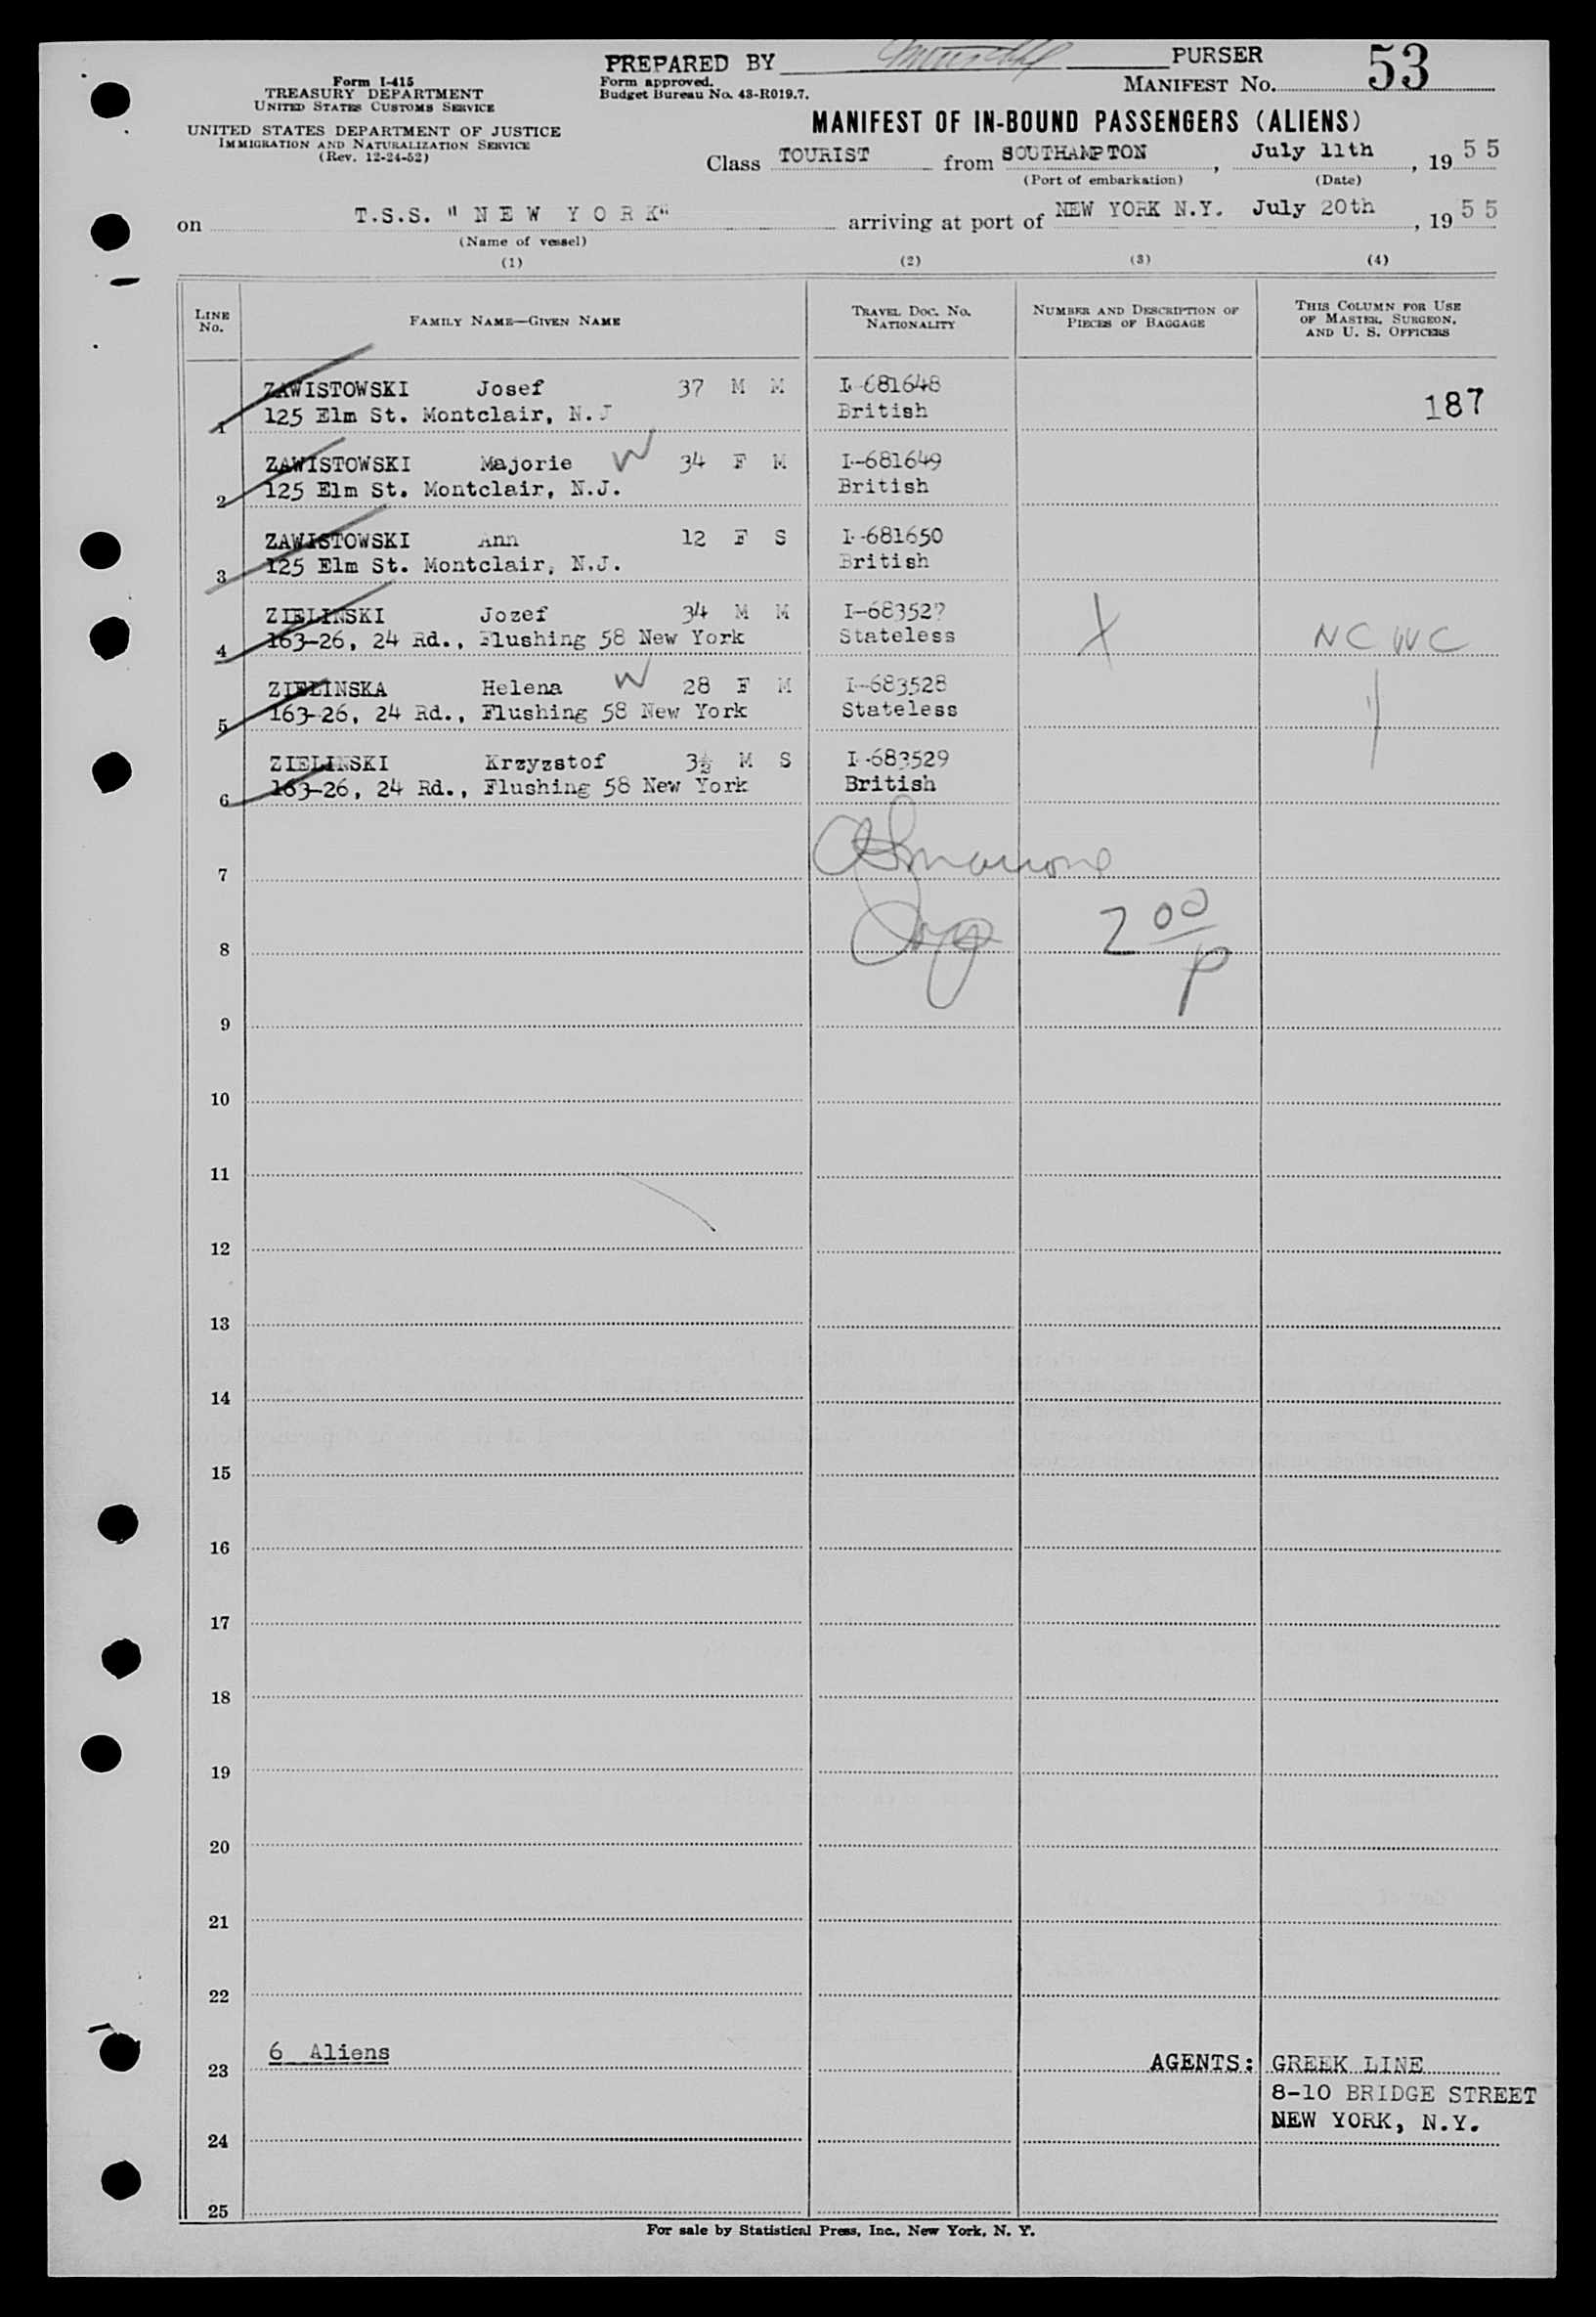 Form I-415
TREASURY DEPARTMENT
UNITED STATES CUSTOMS SERVICE
UNITED STATES DEPARTMENT OF JUSTICE
IMMIGRATION AND NATURALIZATION SERVICE
(Rev. 12-24-52)
PREPARED BY PURSER
Form approved.
Budget Bureau No. 43-R019.7.
MANIFEST No. 53
MANIFEST OF IN-BOUND PASSENGERS (ALIENS)
Class TOURIST from SOUTHAMPTON, July 11th, 19 55
(Port of embarkation) (Date)
on T.S.S. "NEW YORK" arriving at port of NEW YORK N.Y. July 20th, 19 55
(Name of vessel)
(1) (2) (3) (4)
LINE No. FAMILY NAME—GIVEN NAME TRAVEL DOC. No. NATIONALITY NUMBER AND DESCRIPTION OF PIECES OF BAGGAGE THIS COLUMN FOR USE OF MASTER, SURGEON, AND U. S. OFFICERS
ZAWISTOWSKI Josef 37 M M I-681648
1 125 Elm St. Montclair, N.J British 187
ZAWISTOWSKI Majorie W 34 F M I-681649
2 125 Elm St. Montclair, N.J. British
ZAWISTOWSKI Ann 12 F S I-681650
3 125 Elm St. Montclair, N.J. British
ZIELINSKI Jozef 34 M M I-683527
4 163-26, 24 Rd., Flushing 58 New York Stateless X NCWC
ZIELINSKA Helena W 28 F M I-683528
5 163-26, 24 Rd., Flushing 58 New York Stateless
ZIELINSKI Krzyzstof 3½ M S I-683529
6 163-26, 24 Rd., Flushing 58 New York British
7
8 2 00 p
9
10
11
12
13
14
15
16
17
18
19
20
21
22
23 6 Aliens AGENTS: GREEK LINE
8-10 BRIDGE STREET
24 NEW YORK, N.Y.
25
For sale by Statistical Press, Inc., New York, N. Y.